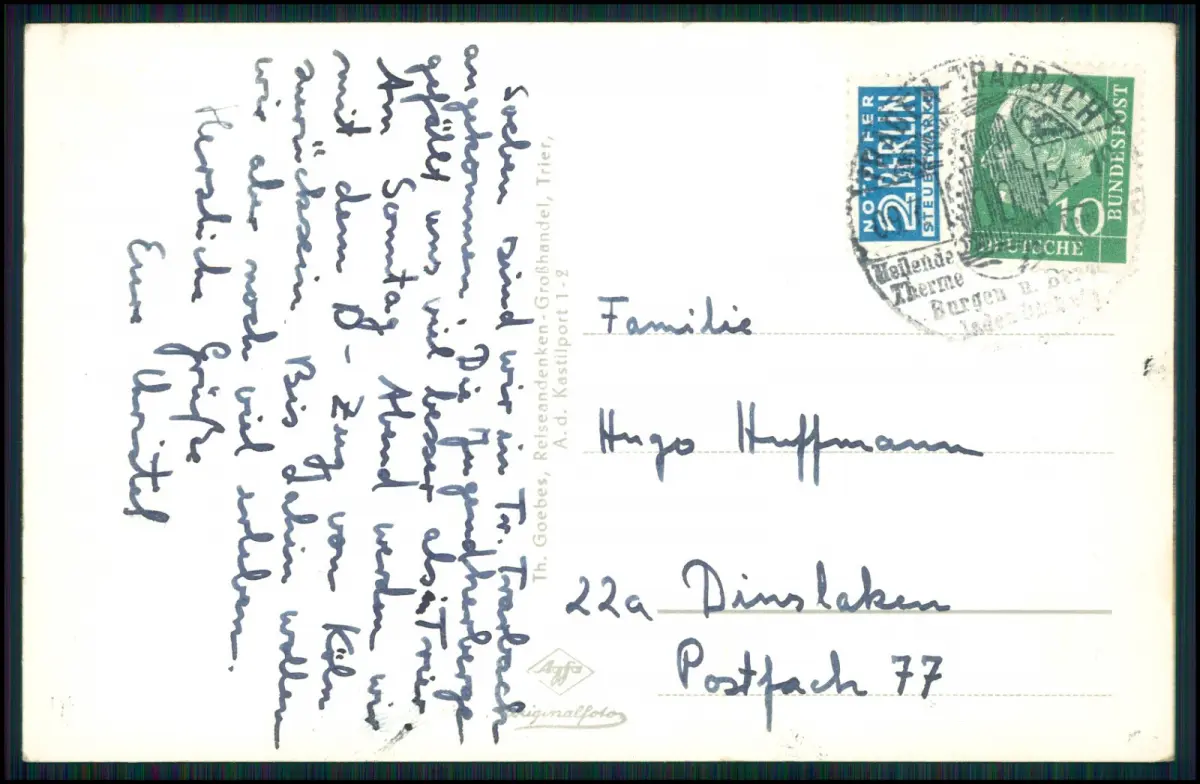 Soeben sind wir in Tr. Trarbach
angekommen. Die Jugendherberge
gefällt uns viel besser als in Trier.
Am Sonntag Abend werden wir
mit dem D-Zug von Köln
zurücksein. Bis dahin wollen
wir aber noch viel erleben.
Herzliche Grüße
Eure Christel
Th. Goebes, Reiseandenken-Großhandel, Trier,
A. d. Kastilport 1-2
Agfa
Originalfoto
NOTOPFER
2 BERLIN
STEUERMARKE
BUNDESPOST
10
DEUTSCHE
TRARBACH
54
Heilende
Therme
Burgen u.
Familie
Hugo Huffmann
22a Dinslaken
Postfach 77